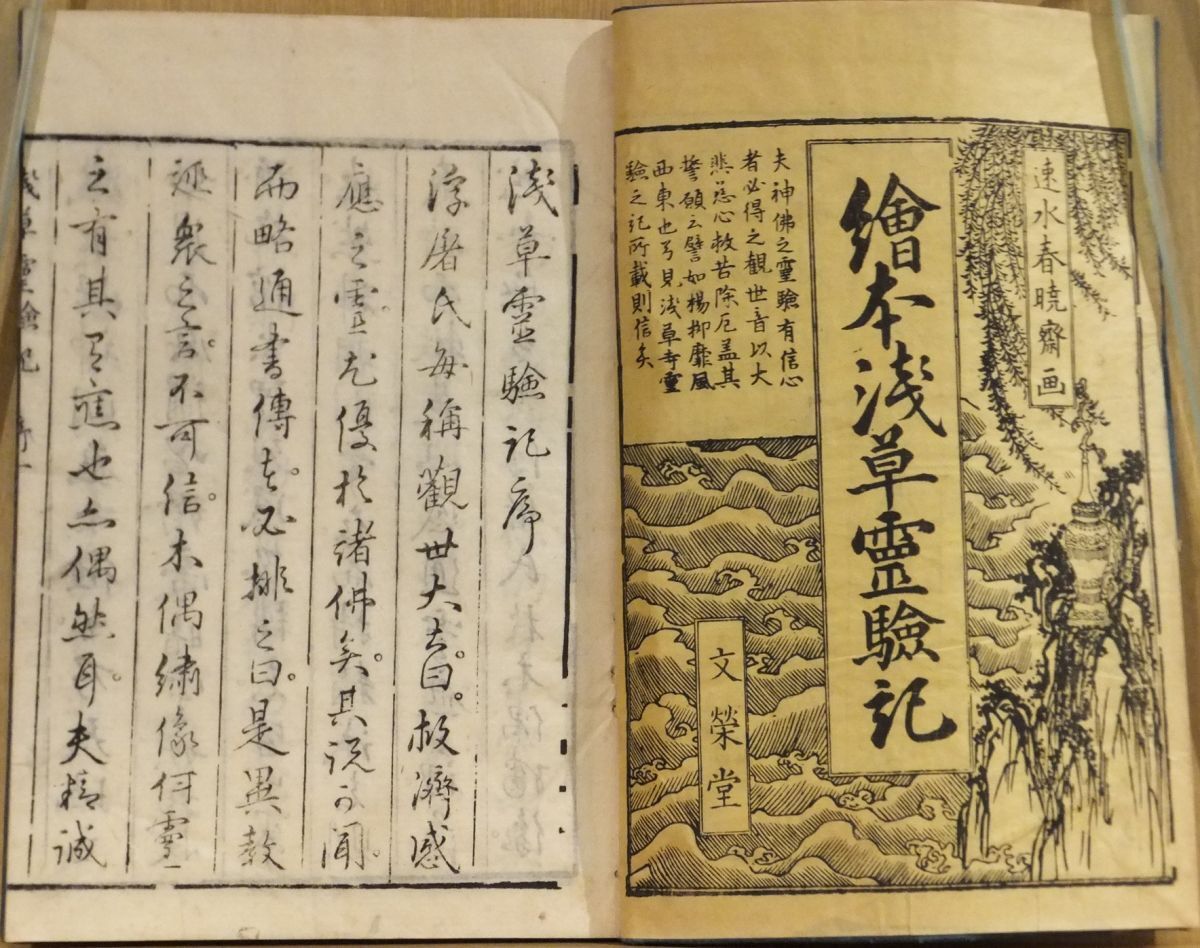 速水春暁齋画
繪本淺草靈驗記
夫神佛之靈驗有信心
者必得之觀世音以大
悲慈心救苦除厄盖其
誓願云譬如楊柳靡風
西東也今見浅草寺靈
驗之記所載則信矣
文榮堂
淺草靈驗記序
浮屠氏每稱觀世大士曰。救濟感
應之靈尤優於諸佛矣。其説可聞。
而略通書傳者。必排之曰。是異教
誣衆之言。不可信。木偶繡像何靈
之有其有應也亦偶然耳。夫精誠
淺草靈驗記 序一